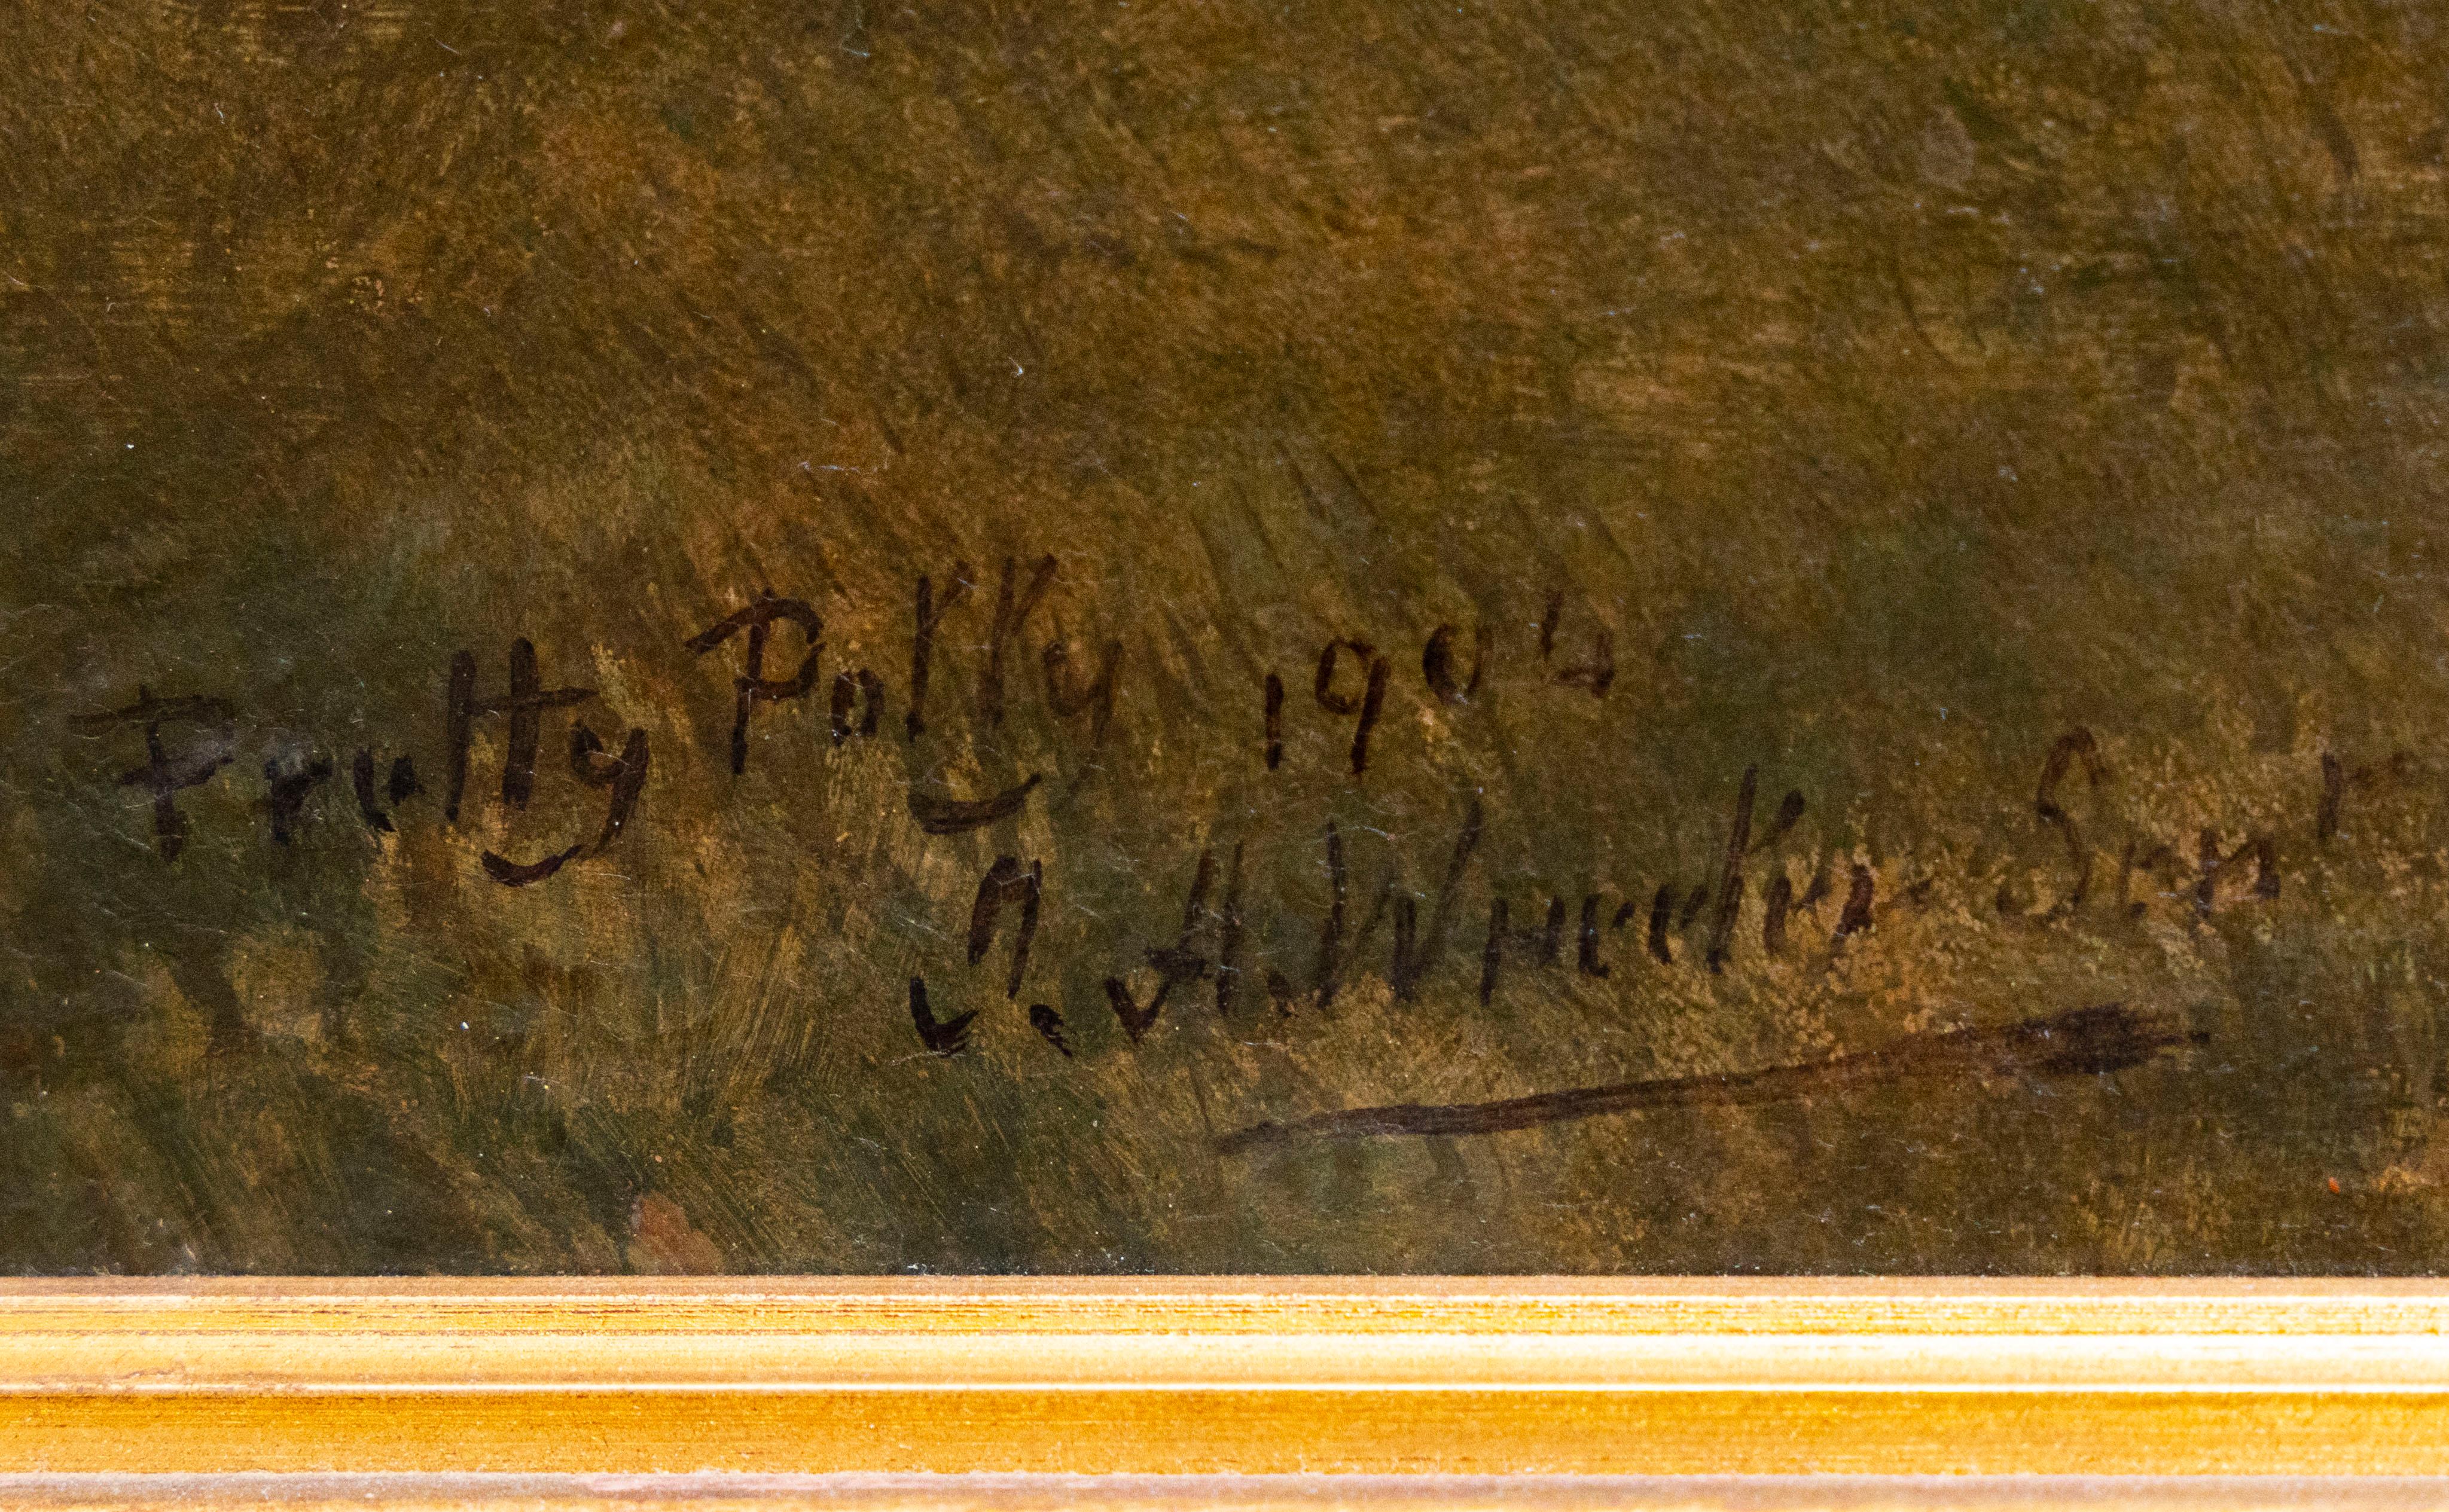 Pretty Polly 1904
J. A. Wheeler Senr